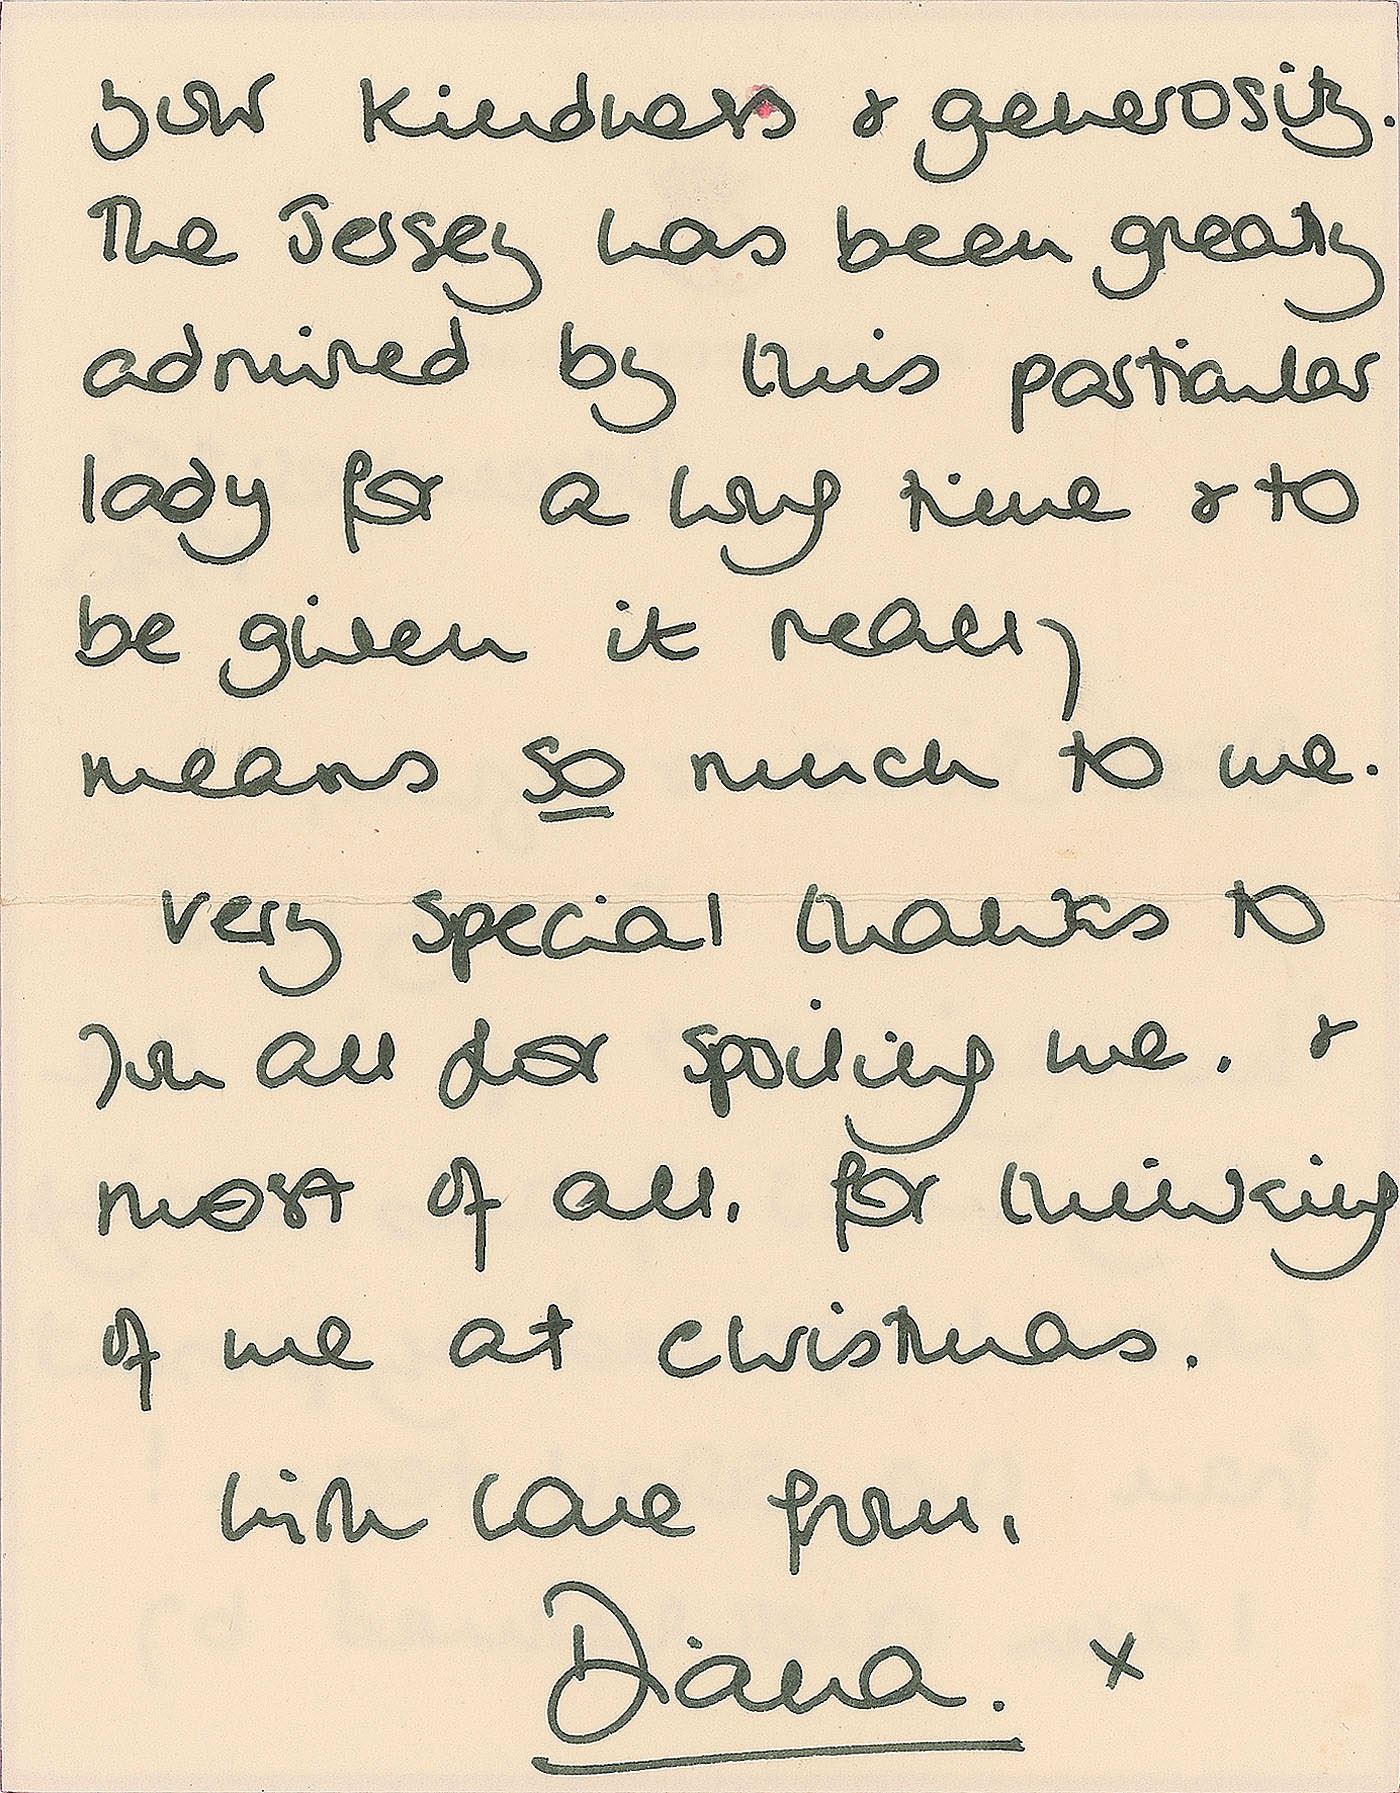 your kindness & generosity.
The Jersey has been greatly
admired by this particular
lady for a long time & to
be given it really
means so much to me.
Very special thanks to
you all for spoiling me. &
most of all, for thinking
of me at Christmas.
with love from,
Diana. x